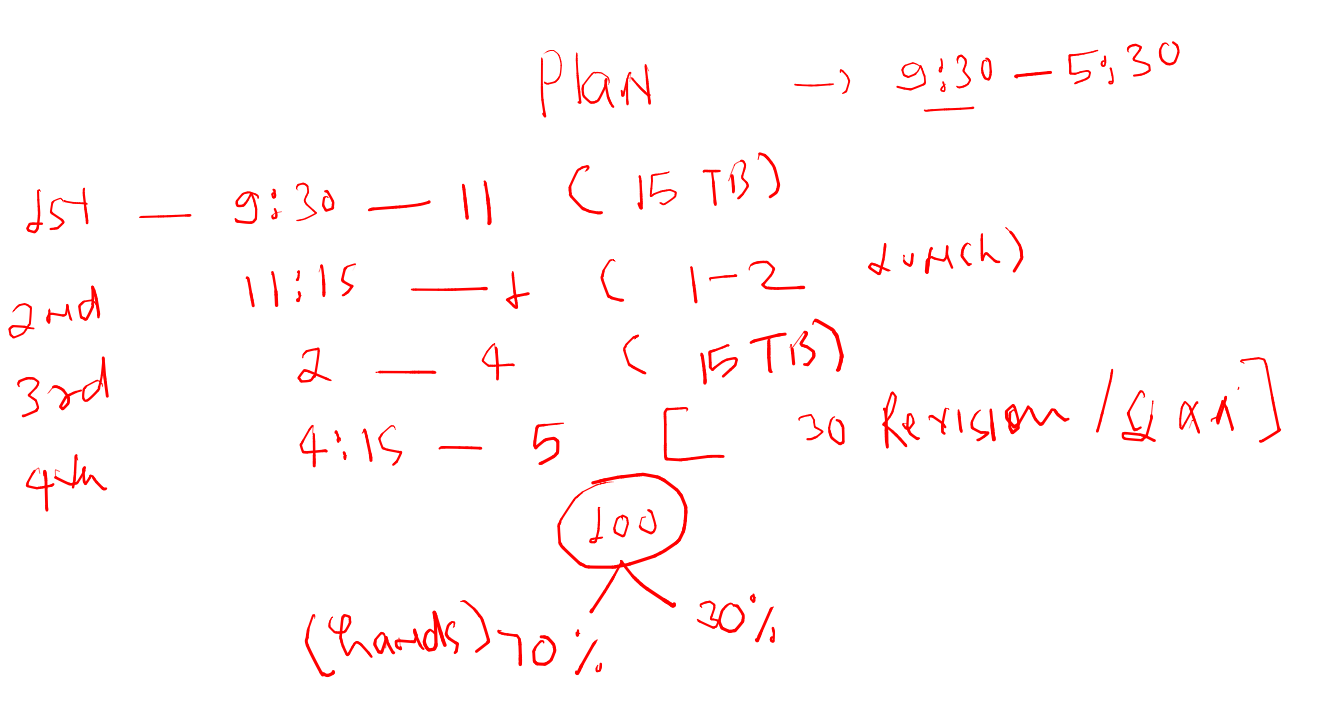 Plan → 9:30 - 5:30
1st - 9:30 - 11 ( 15 TB)
2nd 11:15 - 1 ( 1-2 Lunch)
3rd 2 - 4 ( 15 TB)
4th 4:15 - 5 [ 30 Revision / Q&A ]
100
(hands) 70% 30%